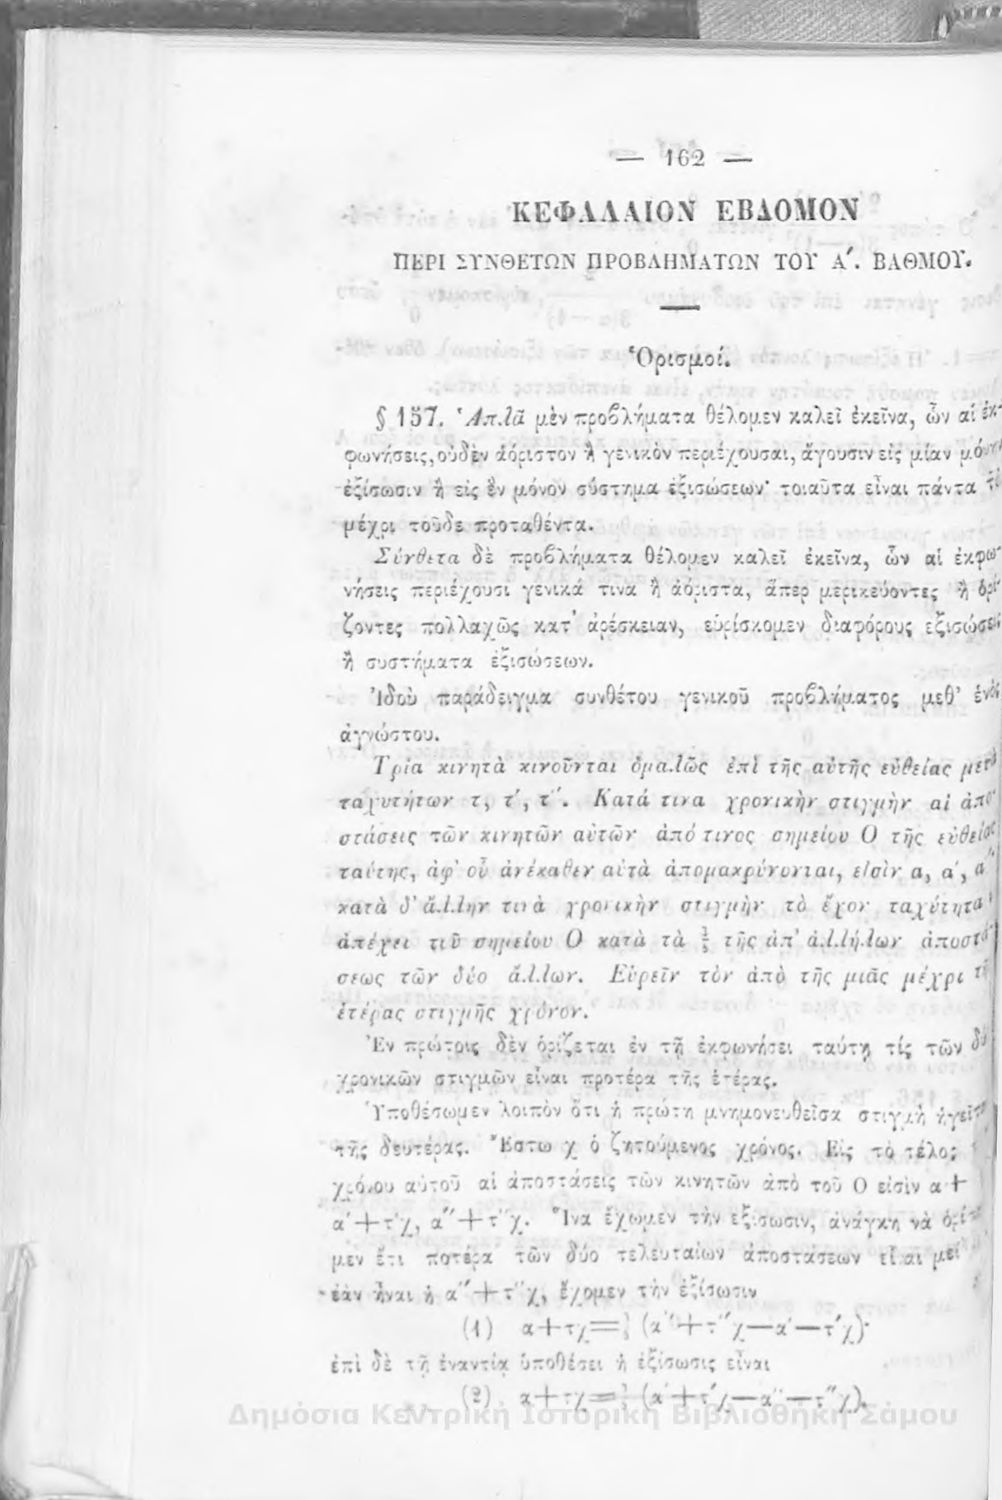 — 162 —
ΚΕΦΑΛΑΙΟΝ ΕΒΔΟΜΟΝ
ΠΕΡΙ ΣΥΝΘΕΤΩΝ ΠΡΟΒΛΗΜΑΤΩΝ ΤΟΥ Α΄. ΒΑΘΜΟΥ.
Ὁρισμοί.
§ 157. Ἁπλᾶ μὲν προβλήματα θέλομεν καλεῖ ἐκεῖνα, ὧν αἱ ἐκ-
φωνήσεις, οὐδὲν ἀόριστον ἢ γενικὸν περιέχουσαι, ἄγουσιν εἰς μίαν μόνην
ἐξίσωσιν ἢ εἰς ἓν μόνον σύστημα ἐξισώσεων· τοιαῦτα εἶναι πάντα τὰ
μέχρι τοῦδε προταθέντα.
Σύνθετα δὲ προβλήματα θέλομεν καλεῖ ἐκεῖνα, ὧν αἱ ἐκφω-
νήσεις περιέχουσι γενικά τινα ἢ ἀόριστα, ἅπερ μερικεύοντες ἢ ὁρί-
ζοντες πολλαχῶς κατ' ἀρέσκειαν, εὑρίσκομεν διαφόρους ἐξισώσεις
ἢ συστήματα ἐξισώσεων.
Ἰδοὺ παράδειγμα συνθέτου γενικοῦ προβλήματος μεθ' ἑνὸς
ἀγνώστου.
Τρία κινητὰ κινοῦνται ὁμαλῶς ἐπὶ τῆς αὐτῆς εὐθείας μετὰ
ταχυτήτων τ, τ', τ''. Κατά τινα χρονικὴν στιγμὴν αἱ ἀπο-
στάσεις τῶν κινητῶν αὐτῶν ἀπό τινος σημείου Ο τῆς εὐθείας
ταύτης, ἀφ' οὗ ἀνέκαθεν αὐτὰ ἀπομακρύνονται, εἰσὶν α, α', α''
κατὰ δ' ἄλλην τινὰ χρονικὴν στιγμὴν τὸ ἔχον ταχύτητα
ἀπέχει τοῦ σημείου Ο κατὰ τὰ τῆς ἀπ' ἀλλήλων ἀποστά-
σεως τῶν δύο ἄλλων. Εὑρεῖν τὸν ἀπὸ τῆς μιᾶς μέχρι τῆς
ἑτέρας στιγμῆς χρόνον.
Ἐν πρώτοις δὲν ὁρίζεται ἐν τῇ ἐκφωνήσει ταύτῃ τίς τῶν δύο
χρονικῶν στιγμῶν εἶναι προτέρα τῆς ἑτέρας.
Ὑποθέσωμεν λοιπὸν ὅτι ἡ πρώτη μνημονευθεῖσα στιγμὴ ἡγεῖται
τῆς δευτέρας. Ἔστω χ ὁ ζητούμενος χρόνος. Εἰς τὸ τέλος
χρόνου αὐτοῦ αἱ ἀποστάσεις τῶν κινητῶν ἀπὸ τοῦ Ο εἰσὶν α+
α'+τ'χ, α''+τ''χ. Ἵνα ἔχωμεν τὴν ἐξίσωσιν, ἀνάγκη νὰ ὁρίσω-
μεν ἔτι ποτέρα τῶν δύο τελευταίων ἀποστάσεων εἶναι μεί
ἐὰν ἦναι ἡ α''+τ''χ, ἔχομεν τὴν ἐξίσωσιν
(1) α+τχ= (α''+τ''χ—α'—τ'χ)·
ἐπὶ δὲ τῇ ἐναντίᾳ ὑποθέσει ἡ ἐξίσωσις εἶναι
(2) α+τχ= (α'+τ'χ—α''—τ''χ).
Δημόσια Κεντρική Ιστορική Βιβλιοθήκη Σάμου